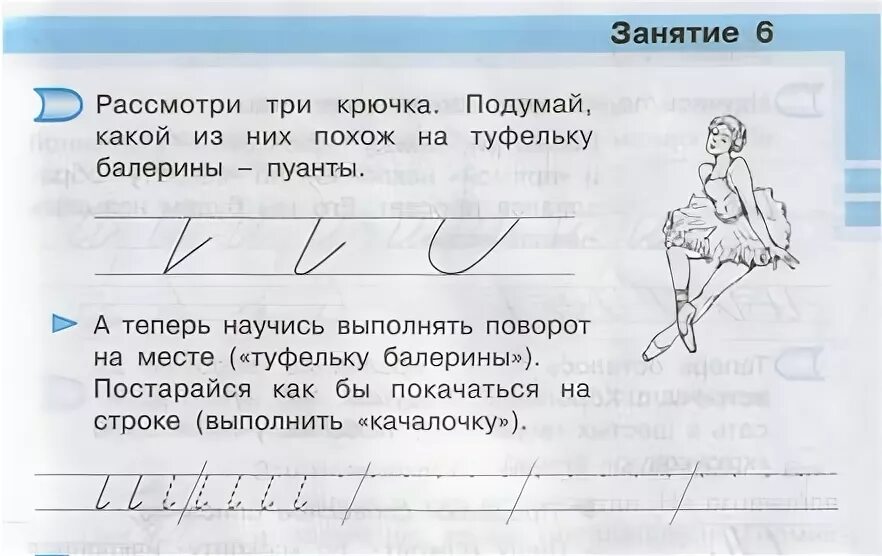 Занятие 6
Рассмотри три крючка. Подумай,
какой из них похож на туфельку
балерины – пуанты.
А теперь научись выполнять поворот
на месте («туфельку балерины»).
Постарайся как бы покачаться на
строке (выполнить «качалочку»).